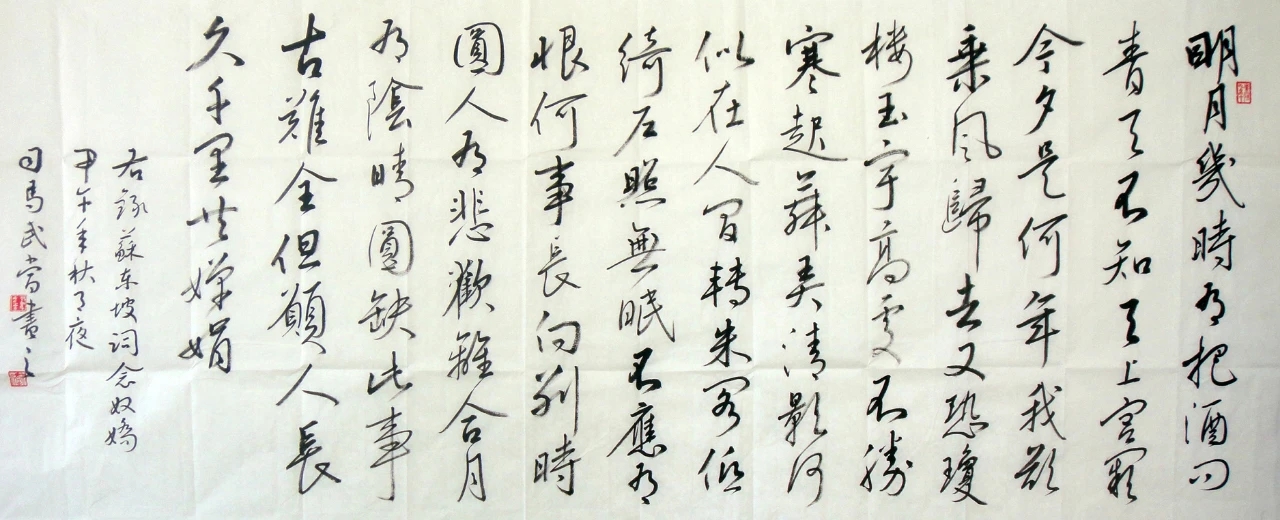 明月幾時有把酒问
青天不知天上宫闕
今夕是何年我欲
乘风歸去又恐瓊
楼玉宇高處不勝
寒起舞弄清影何
似在人间轉朱阁低
绮户照無眠不應有
恨何事長向别時
圓人有悲歡離合月
有陰晴圓缺此事
古難全但願人長
久千里共嬋娟
右錄蘇东坡词念奴嬌
甲午年秋月夜
司馬武當書之